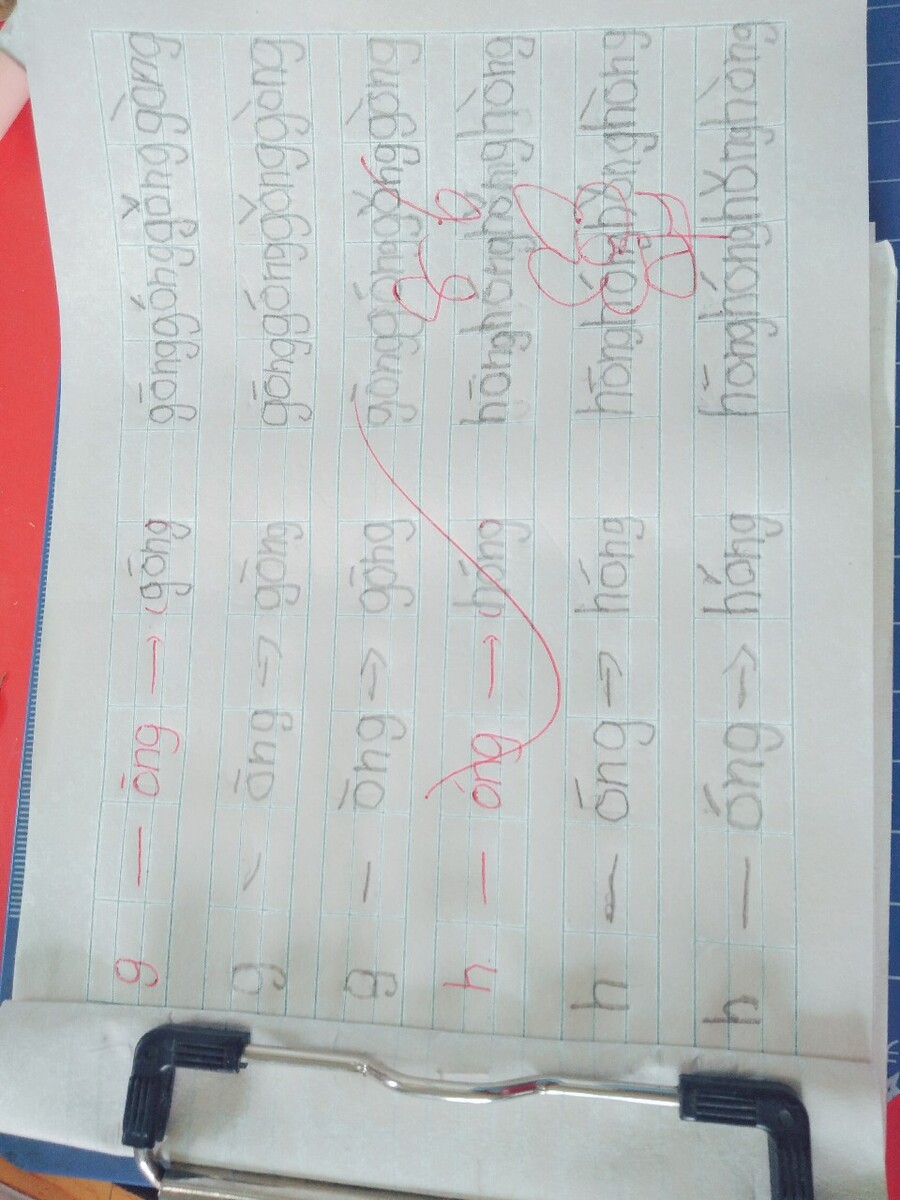 g — ōng → gōng gōnggónggǒnggòng
g — ōng → gōng gōnggónggǒnggòng
g — ōng → gōng gōnggónggǒnggòng
h — óng → hóng hōnghónghǒnghòng
h — óng → hóng hōnghónghǒnghòng
h — óng → hóng hōnghónghǒnghòng